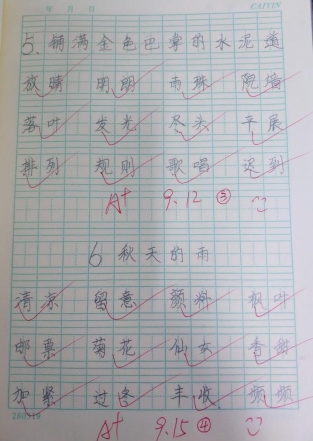 年 月 日 CAIYIN
5. 铺满金色巴掌的水泥道
放晴 明朗 雨珠 院墙
落叶 发光 尽头 平展
排列 规则 歌唱 迟到
A+ 9.12 ③
6 秋天的雨
清凉 留意 颜料 枫叶
邮票 菊花 仙女 香甜
加紧 过冬 丰收 频频
A+ 9.15 ④